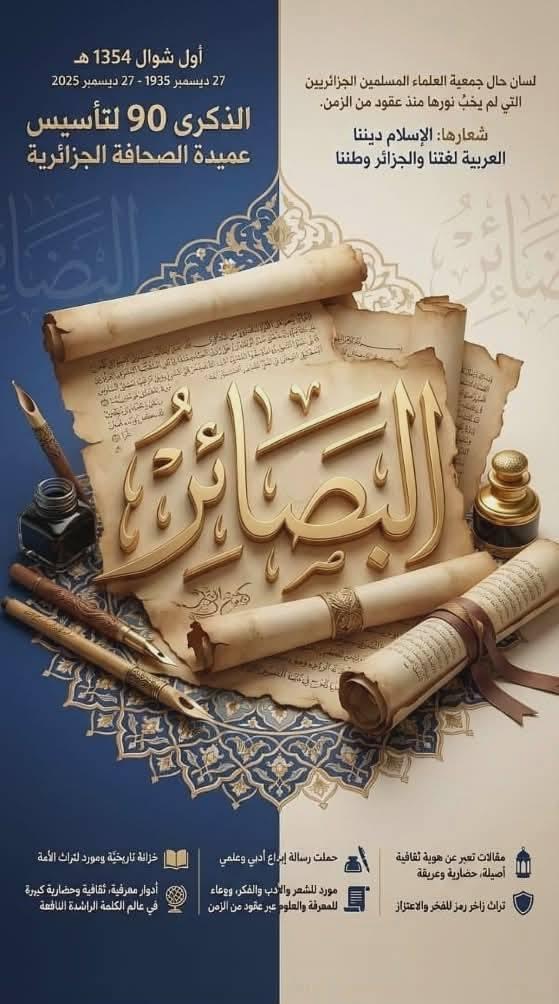 أول شوال 1354 هـ
27 ديسمبر 1935 - 27 ديسمبر 2025
الذكرى 90 لتأسيس
عميدة الصحافة الجزائرية
لسان حال جمعية العلماء المسلمين الجزائريين
التي لم يخبُ نورها منذ عقود من الزمن.
شعارها: الإسلام ديننا
العربية لغتنا والجزائر وطننا
البصائر
مقالات تعبر عن هوية ثقافية
أصيلة، حضارية وعريقة
تراث زاخر رمز للفخر والاعتزاز
حملت رسالة إبداع أدبي وعلمي
مورد للشعر والأدب والفكر، ووعاء
للمعرفة والعلوم عبر عقود من الزمن
خزانة تاريخيّة ومورد لتراث الأمة
أدوار معرفية، ثقافية وحضارية كبيرة
في عالم الكلمة الراشدة النافعة